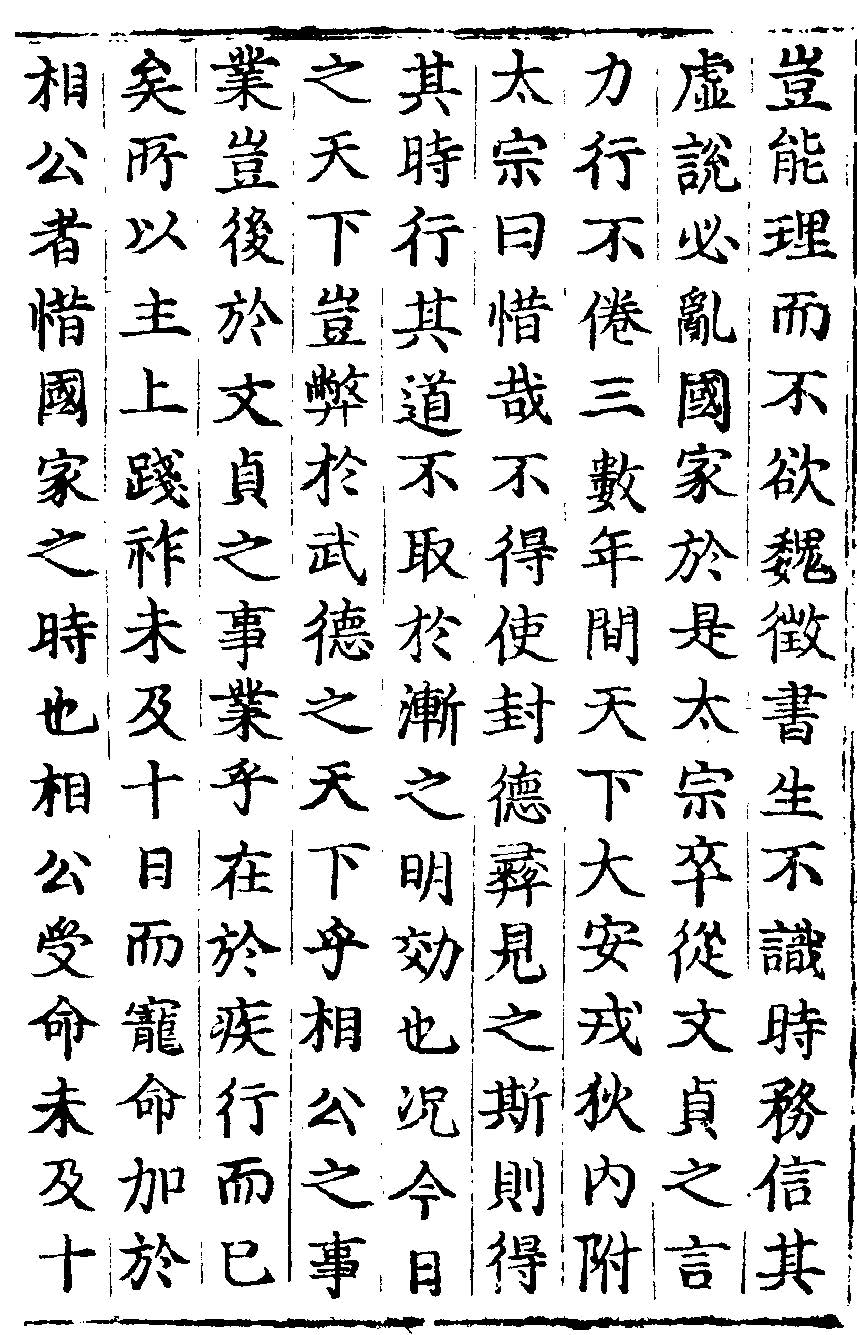 豈能理而不欲魏徵書生不識時務信其
虛說必亂國家於是太宗卒從文貞之言
力行不倦三數年間天下大安戎狄內附
太宗曰惜哉不得使封德彝見之斯則得
其時行其道不取於漸之明効也况今日
之天下豈弊於武德之天下乎相公之事
業豈後於文貞之事業乎在於疾行而已
矣所以主上踐祚未及十日而寵命加於
相公者惜國家之時也相公受命未及十